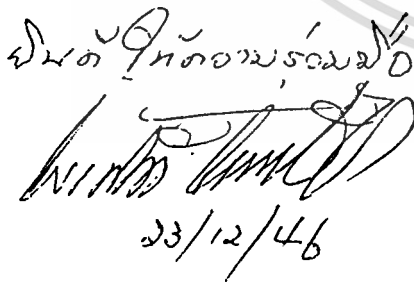 ยินดีให้ความร่วมมือ
23/12/46